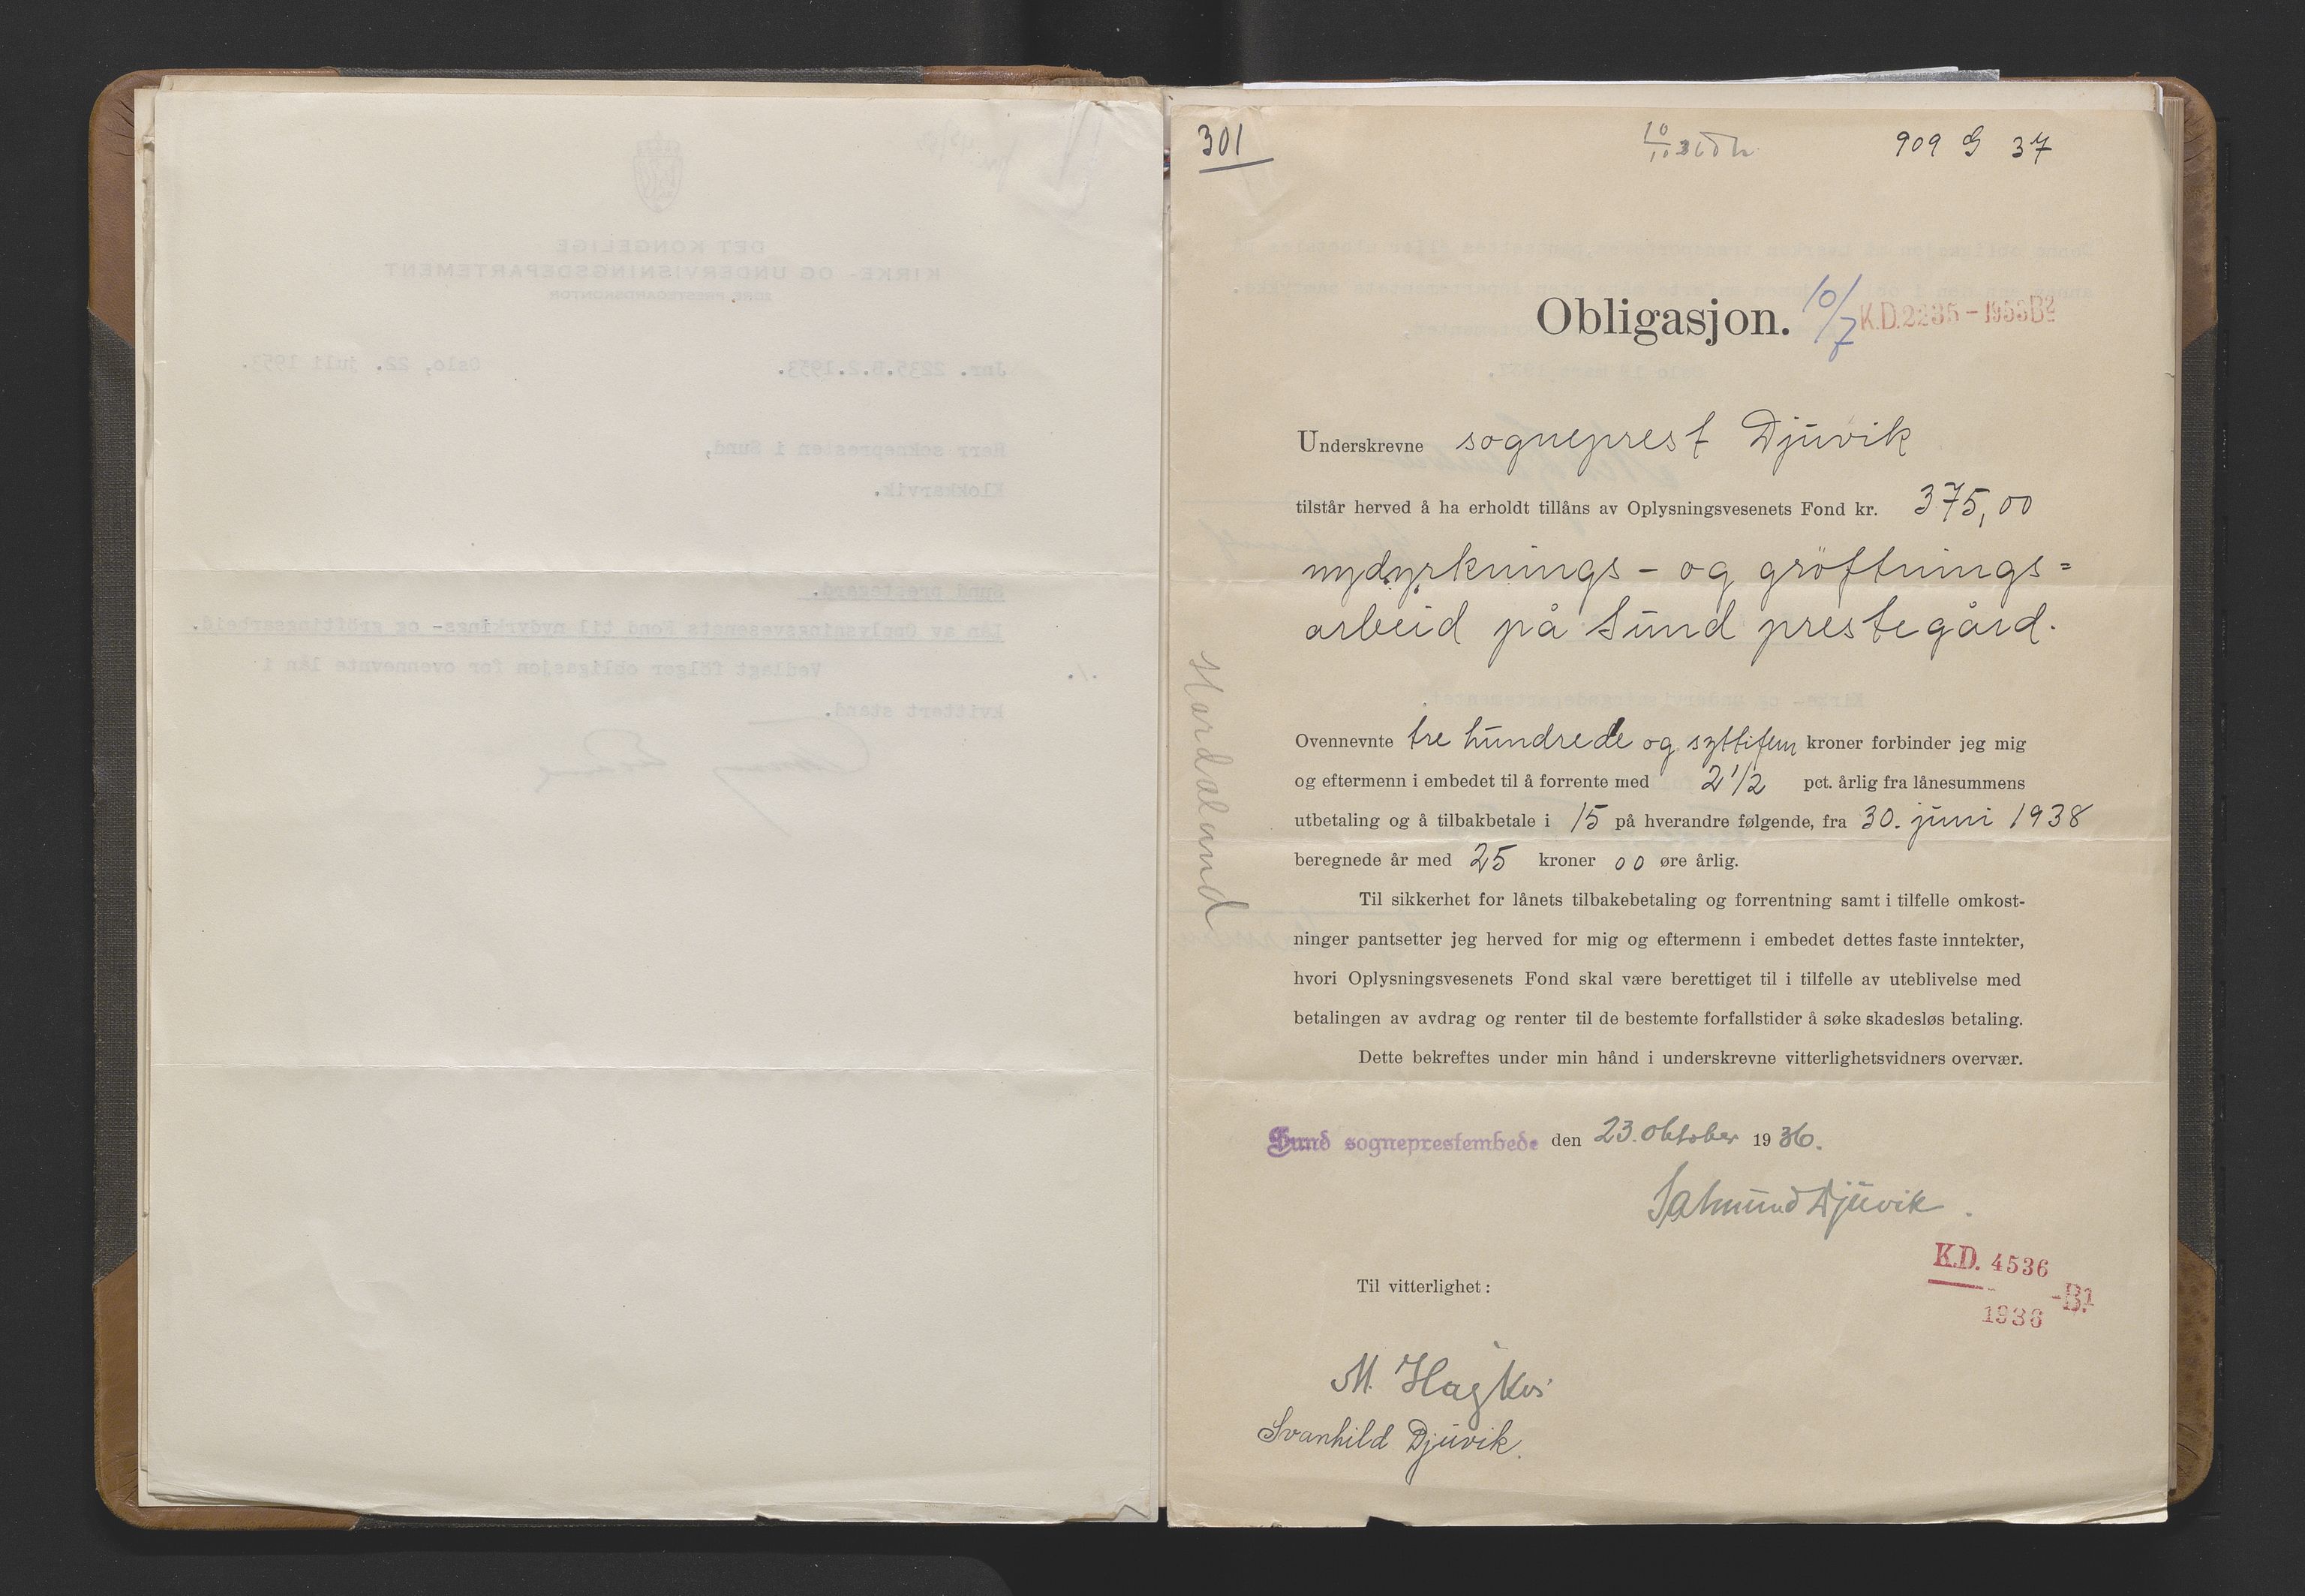 DET KONGELIGE
KIRKE- OG UNDERVISNINGSDEPARTEMENT
PRESTEGARDSKONTOR
Jnr. 2235.B.2.1953.
Oslo, 22. juli 1953.
Herr soknepresten i Sund,
Klokkarvik.
Sund prestegard.
Lån av Opplysningsvesenets Fond til nydyrkings- og gröftingsarbeid.
./.
Vedlagt fölger obligasjon for ovennevnte lån i
kvittert stand.
301
909 G 37
Obligasjon.
10/7
K.D. 2235 - 1953 B2
Underskrevne sogneprest Djuvik
tilstår herved å ha erholdt tillåns av Oplysningsvesenets Fond kr. 375,00
nydyrknings- og gröftnings=
arbeid på Sund prestegård.
Hordaland
Ovennevnte tre hundrede og syttifem kroner forbinder jeg mig
og eftermenn i embedet til å forrente med 2 1/2 pct. årlig fra lånesummens
utbetaling og å tilbakbetale i 15 på hverandre følgende, fra 30. juni 1938
beregnede år med 25 kroner 00 øre årlig.
Til sikkerhet for lånets tilbakebetaling og forrentning samt i tilfelle omkost-
ninger pantsetter jeg herved for mig og eftermenn i embedet dettes faste inntekter,
hvori Oplysningsvesenets Fond skal være berettiget til i tilfelle av uteblivelse med
betalingen av avdrag og renter til de bestemte forfallstider å søke skadesløs betaling.
Dette bekreftes under min hånd i underskrevne vitterlighetsvidners overvær.
Sund sogneprestembede den 23. oktober 1936.
Salmund Djuvik.
K.D. 4536
1936
-B.1
Til vitterlighet:
M.
Svanhild Djuvik.